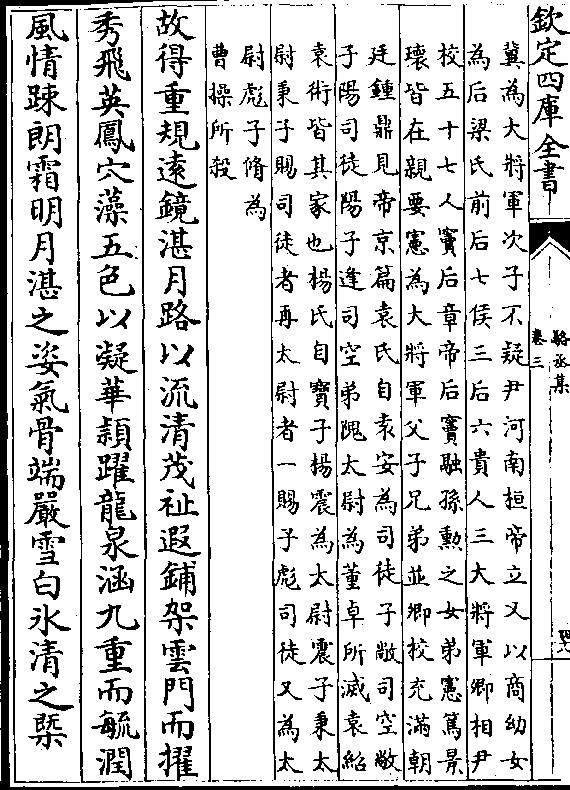 欽定四庫全書
駱丞集
卷三
四八
冀為大將軍次子不疑尹河南桓帝立又以商幼女
為后梁氏前后七侯三后六貴人三大將軍卿相尹
校五十七人竇后章帝后竇融孫勲之女弟憲篤景
瓌皆在親要憲為大將軍父子兄弟並卿校充滿朝
廷鍾鼎見帝京篇袁氏自袁安為司徒子敞司空敞
子陽司徒陽子逢司空弟隗太尉為董卓所滅袁紹
袁術皆其家也楊氏自寶子楊震為太尉震子秉太
尉秉子賜司徒者再太尉者一賜子彪司徒又為太
尉彪子脩為
曹操所殺
故得重規遠鏡湛月路以流清茂祉遐鋪架雲門而擢
秀飛英鳳穴藻五色以凝華頴躍龍泉涵九重而毓潤
風情踈朗霜明月湛之姿氣骨端嚴雪白氷清之槩